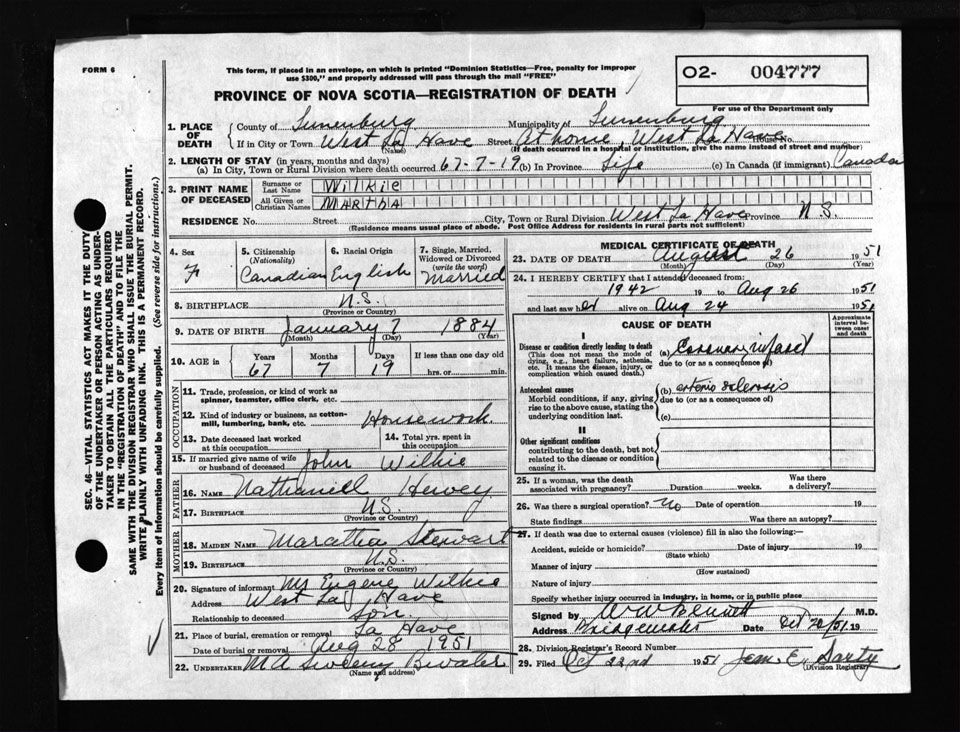 FORM 6
This form, if placed in an envelope, on which is printed "Dominion Statistics—Free, penalty for improper
use $300," and properly addressed will pass through the mail "FREE"
O2- 004777
For use of the Department only
PROVINCE OF NOVA SCOTIA—REGISTRATION OF DEATH
1. PLACE OF DEATH { County of Lunenburg Municipality of Lunenburg
If in City or Town West La Have (Name) Street At home, West La Have House No.
(If death occurred in a hospital or institution, give the name instead of street and number)
2. LENGTH OF STAY (in years, months and days)
(a) In City, Town or Rural Division where death occurred 67-7-19 (b) In Province Life (c) In Canada (if immigrant) Canada
3. PRINT NAME OF DECEASED { Surname or Last Name Wilkie
All Given or Christian Names Martha
RESIDENCE No. Street City, Town or Rural Division West La Have Province N.S.
(Residence means usual place of abode. Post Office Address for residents in rural parts not sufficient)
4. Sex F
5. Citizenship (Nationality) Canadian
6. Racial Origin English
7. Single, Married, Widowed or Divorced (write the word) Married
8. BIRTHPLACE N.S.
(Province or Country)
9. DATE OF BIRTH January 7 1884
(Month) (Day) (Year)
10. AGE in Years 67 Months 7 Days 19 If less than one day old hrs. or min.
OCCUPATION
11. Trade, profession, or kind of work as spinner, teamster, office clerk, etc.
12. Kind of industry or business, as cotton-mill, lumbering, bank, etc. Housework.
13. Date deceased last worked at this occupation
14. Total yrs. spent in this occupation
15. If married give name of wife or husband of deceased John Wilkie
FATHER
16. NAME Nathaniell Hervey
17. BIRTHPLACE N.S.
(Province or Country)
MOTHER
18. MAIDEN NAME Maratha Stewart
19. BIRTHPLACE N.S.
(Province or Country)
20. Signature of informant Mr Eugene Wilkie
Address West La Have
Relationship to deceased Son.
21. Place of burial, cremation or removal La Have
Date of burial or removal Aug 28 1951
22. UNDERTAKER M A Sweeny Bwater
(Name and address)
MEDICAL CERTIFICATE OF DEATH
23. DATE OF DEATH August 26 1951
(Month) (Day) (Year)
24. I HEREBY CERTIFY that I attended deceased from:
1942 19 to Aug 26 1951
and last saw her alive on Aug 24 1951
CAUSE OF DEATH
Approximate interval between onset and death
I
Disease or condition directly leading to death
(This does not mean the mode of dying, e.g., heart failure, asthenia, etc. It means the disease, injury, or complication which caused death.)
(a) Coronary infarct
due to (or as a consequence of)
Antecedent causes
Morbid conditions, if any, giving rise to the above cause, stating the underlying condition last.
(b) arterio sclerosis
due to (or as a consequence of)
(c)
II
Other significant conditions
contributing to the death, but not related to the disease or condition causing it.
25. If a woman, was the death associated with pregnancy? Duration weeks. Was there a delivery?
26. Was there a surgical operation? No Date of operation 19
State findings Was there an autopsy?
27. If death was due to external causes (violence) fill in also the following:—
Accident, suicide or homicide? Date of injury 19
(State which)
Manner of injury
(How sustained)
Nature of injury
Specify whether injury occurred in industry, in home, or in public place
Signed by W W Bennett M.D.
Address Bridgewater Date Oct 20/51 19
28. Division Registrar's Record Number
29. Filed Oct 22nd 1951 E. Sarty
(Division Registrar)
SEC. 46—VITAL STATISTICS ACT MAKES IT THE DUTY
OF THE UNDERTAKER OR PERSON ACTING AS UNDER-
TAKER TO OBTAIN ALL THE PARTICULARS REQUIRED
IN THE "REGISTRATION OF DEATH" AND TO FILE THE
SAME WITH THE DIVISION REGISTRAR WHO SHALL ISSUE THE BURIAL PERMIT.
WRITE PLAINLY WITH UNFADING INK. THIS IS A PERMANENT RECORD.
Every item of information should be carefully supplied. (See reverse side for instructions.)